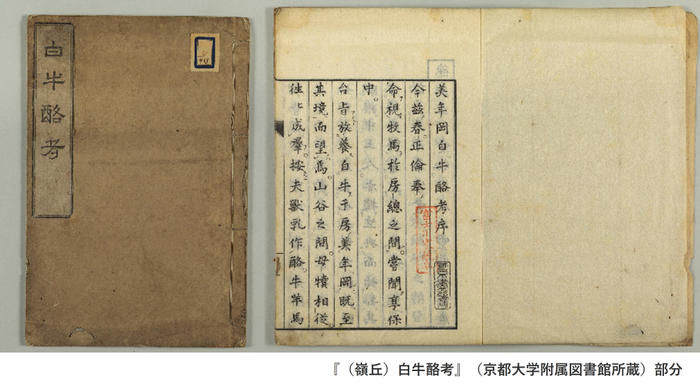 白牛酪考
美年岡白牛酪考序
今茲春正倫奉
命視牧馬於房總之間嘗聞享保
中
台旨放養白牛于房美年岡既至
其境而望焉山谷之間母犢相從
往成羣按夫獸乳作酪牛第馬
『（嶺丘）白牛酪考』（京都大学附属図書館所蔵）部分